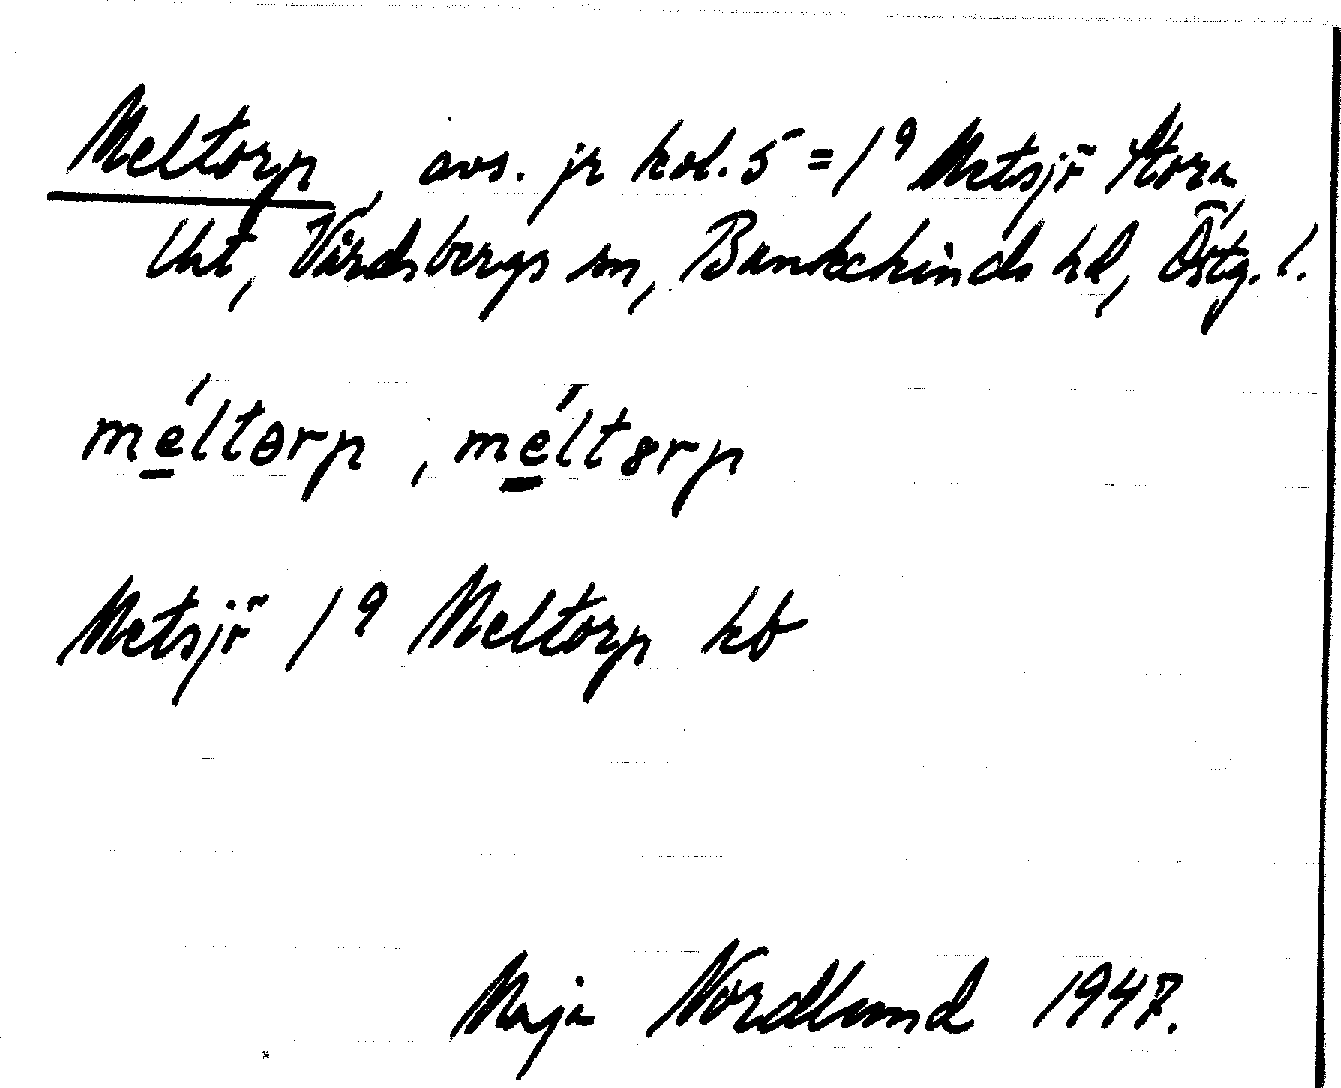 Meltorp, avs. jr kol. 5 = 1⁹ Metsjř Stora,
Uht, Vårdsbergs sn, Bankekinds hd, Östg. l.
méltɵrp, mélt8rp
Metsjř 1⁹ Meltorp kb
Maja Nordlund 1947.